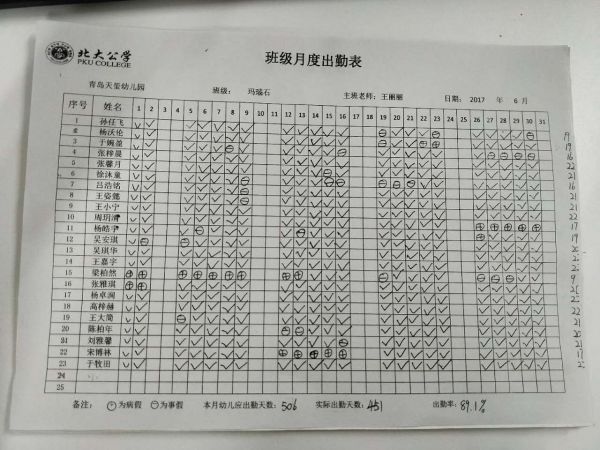 北大公学
PKU COLLEGE
班级月度出勤表
青岛天玺幼儿园 班级: 玛瑙石 主班老师: 王丽丽 日期: 2017 年 6 月
序号 姓名 1 2 3 4 5 6 7 8 9 10 11 12 13 14 15 16 17 18 19 20 21 22 23 24 25 26 27 28 29 30 31
1 孙任飞
2 杨沃伦 19
3 于婉盈 19
4 张梓晨 16
5 张馨月 22
6 徐沐童 21
7 吕浩铭 16
8 王姿懿 21
9 王小宁 21
10 周玥清 22
11 杨皓宇 17
12 吴安琪 19
13 吴琪华
14 王嘉宇
15 梁柏然
16 张雅琪
17 杨卓润
18 高梓赫
19 王大简 21
20 陈柏年 20
21 刘雅馨 21
22 宋博林 17
23 于牧田
24
25
备注: ⊕为病假 ⊖为事假 本月幼儿应出勤天数: 506 实际出勤天数: 451 出勤率: 89.1%